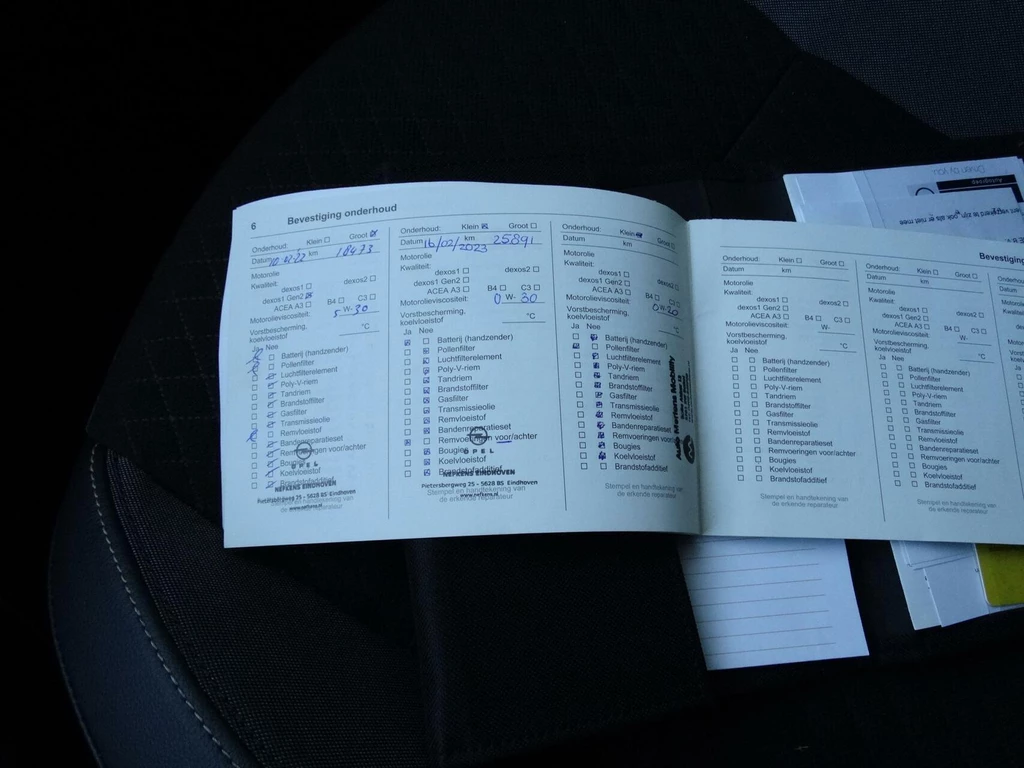 6 Bevestiging onderhoud
Onderhoud: Klein ☐ Groot ☒
Datum 10-02-22 km 18473
Motorolie
Kwaliteit:
dexos1 ☐ dexos2 ☐
dexos1 Gen2 ☒
ACEA A3 ☐ B4 ☐ C3 ☐
Motorolieviscositeit: 5 W- 30
Vorstbescherming,
koelvloeistof °C
Ja Nee
Batterij (handzender)
Pollenfilter
Luchtfilterelement
Poly-V-riem
Tandriem
Brandstoffilter
Gasfilter
Transmissieolie
Remvloeistof
Bandenreparatieset
Remvoeringen voor/achter
OPEL
NEFKENS EINDHOVEN
Pietersbergweg 25 - 5628 BS Eindhoven
www.nefkens.nl
Onderhoud: Klein ☒ Groot ☐
Datum 16/02/2023 km 25891
Motorolie
Kwaliteit:
dexos1 ☐ dexos2 ☐
dexos1 Gen2 ☒
ACEA A3 ☐ B4 ☐ C3 ☐
Motorolieviscositeit: 0 W- 30
Vorstbescherming,
koelvloeistof °C
Ja Nee
Batterij (handzender)
Pollenfilter
Luchtfilterelement
Poly-V-riem
Tandriem
Brandstoffilter
Gasfilter
Transmissieolie
Remvloeistof
Bandenreparatieset
Remvoeringen voor/achter
Bougies
Koelvloeistof
Brandstofadditief
OPEL
NEFKENS EINDHOVEN
Pietersbergweg 25 - 5628 BS Eindhoven
Stempel en handtekening van
de erkende reparateur
www.nefkens.nl
Onderhoud: Klein ☒ Groot ☐
Datum km
Motorolie
Kwaliteit:
dexos1 ☐ dexos2 ☐
dexos1 Gen2 ☐
ACEA A3 ☐ B4 ☐ C3 ☐
Motorolieviscositeit: 0 W- 20
Vorstbescherming,
koelvloeistof °C
Ja Nee
Batterij (handzender)
Pollenfilter
Luchtfilterelement
Poly-V-riem
Tandriem
Brandstoffilter
Gasfilter
Transmissieolie
Remvloeistof
Bandenreparatieset
Remvoeringen voor/achter
Bougies
Koelvloeistof
Brandstofadditief
Auto Martens Mobility
Stempel en handtekening van
de erkende reparateur
Onderhoud: Klein ☐ Groot ☐
Datum km
Motorolie
Kwaliteit:
dexos1 ☐ dexos2 ☐
dexos1 Gen2 ☐
ACEA A3 ☐ B4 ☐ C3 ☐
Motorolieviscositeit: W-
Vorstbescherming,
koelvloeistof °C
Ja Nee
Batterij (handzender)
Pollenfilter
Luchtfilterelement
Poly-V-riem
Tandriem
Brandstoffilter
Gasfilter
Transmissieolie
Remvloeistof
Bandenreparatieset
Remvoeringen voor/achter
Bougies
Koelvloeistof
Brandstofadditief
Stempel en handtekening van
de erkende reparateur
Bevestiging
Onderhoud: Klein ☐ Groot ☐
Datum km
Motorolie
Kwaliteit:
dexos1 ☐ dexos2 ☐
dexos1 Gen2 ☐
ACEA A3 ☐ B4 ☐ C3 ☐
Motorolieviscositeit: W-
Vorstbescherming,
koelvloeistof °C
Ja Nee
Batterij (handzender)
Pollenfilter
Luchtfilterelement
Poly-V-riem
Tandriem
Brandstoffilter
Gasfilter
Transmissieolie
Remvloeistof
Bandenreparatieset
Remvoeringen voor/achter
Bougies
Koelvloeistof
Brandstofadditief
Stempel en handtekening van
de erkende reparateur